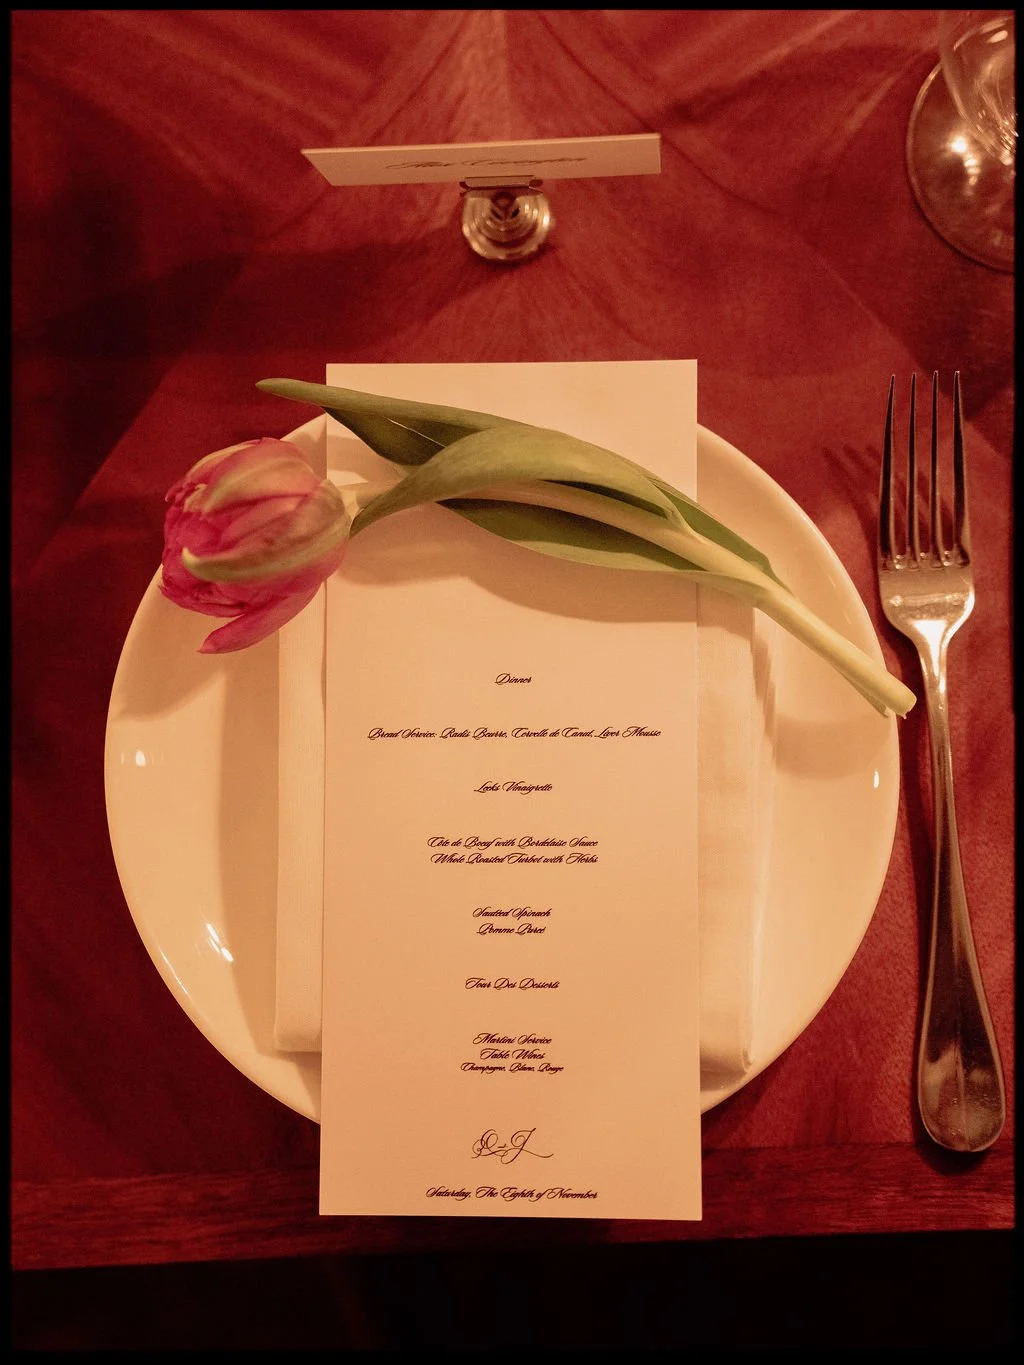 Dinner
Bread Service: Radis Beurre, Cervelle de Canut, Liver Mousse
Leeks Vinaigrette
Côte de Boeuf with Bordelaise Sauce
Whole Roasted Turbot with Herbs
Sautéed Spinach
Pomme Pureé
Tour Des Desserts
Martini Service
Table Wines
Champagne, Blanc, Rouge
Saturday, The Eighth of November